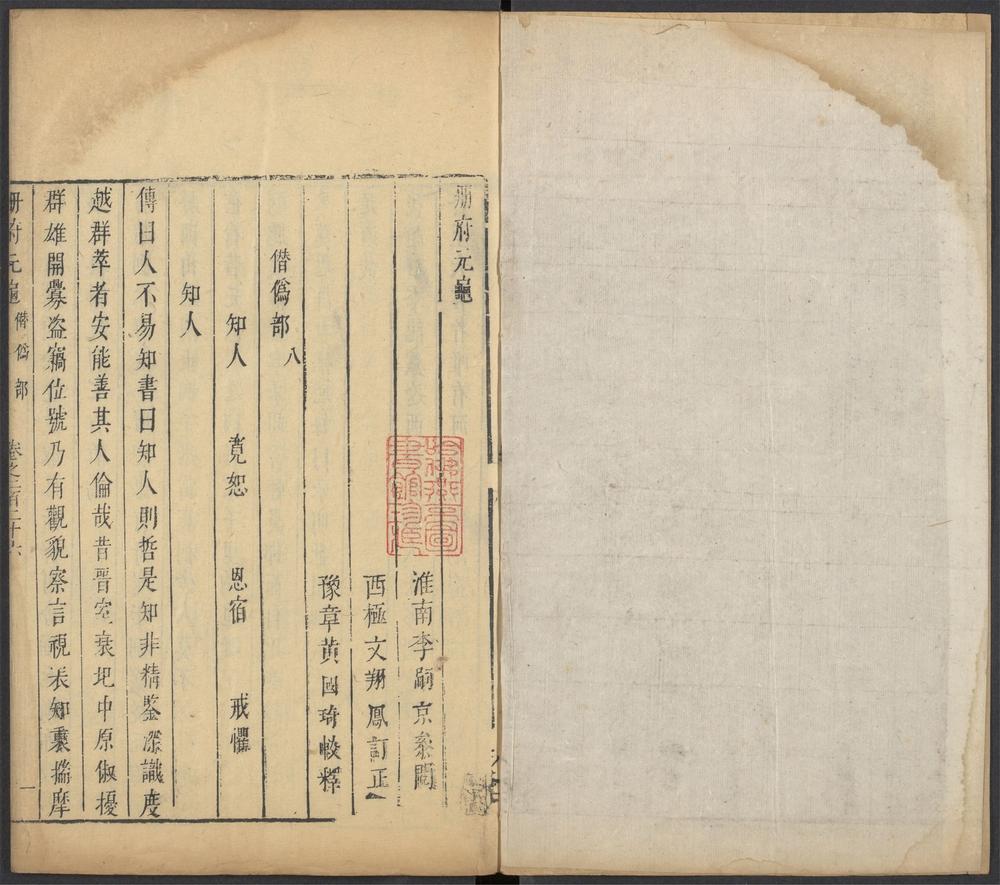 冊府元龜
淮南李嗣京叅閱
西極文翔鳳訂正
豫章黃國琦較釋
僭偽部 八
知人 寬恕 恩宿 戒懼
知人
傳曰人不易知書曰知人則哲是知非精鑒深識度
越群萃者安能善其人倫哉昔晋室衰圯中原俶擾
群雄開釁盜竊位號乃有觀貌察言視表知裏揣摩
冊府元龜 僭偽部 卷之二百二十六 一